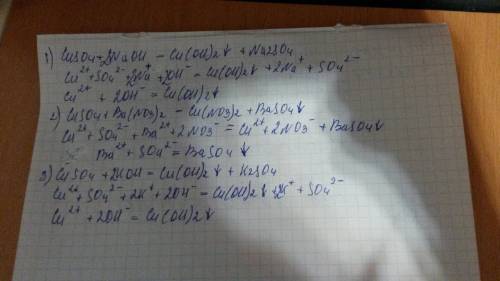 1) CuSO4 + 2NaOH - Cu(OH)2↓ + Na2SO4
Cu2+ + SO4 2- + 2Na+ + 2OH- - Cu(OH)2↓ + 2Na+ + SO4 2-
Cu2+ + 2OH- = Cu(OH)2↓
2) CuSO4 + Ba(NO3)2 - Cu(NO3)2 + BaSO4↓
Cu2+ + SO4 2- + Ba2+ + 2NO3- = Cu2+ + 2NO3- + BaSO4↓
Ba2+ + SO4 2- = BaSO4↓
3) CuSO4 + 2KOH = Cu(OH)2↓ + K2SO4
Cu2+ + SO4 2- + 2K+ + 2OH- - Cu(OH)2↓ + 2K+ + SO4 2-
Cu2+ + 2OH- = Cu(OH)2↓